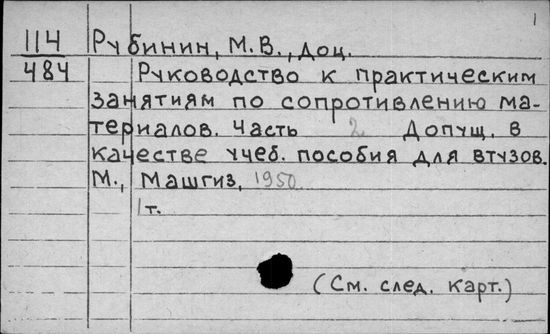 1
114 Рубинин, М.В., доц.
484 Руководство к практическим
занятиям по сопротивлению ма-
териалов. Часть 2 Допущ. в
качестве учеб. пособия для втузов.
М., Машгиз, 1950
1т.
(См. след. карт.)